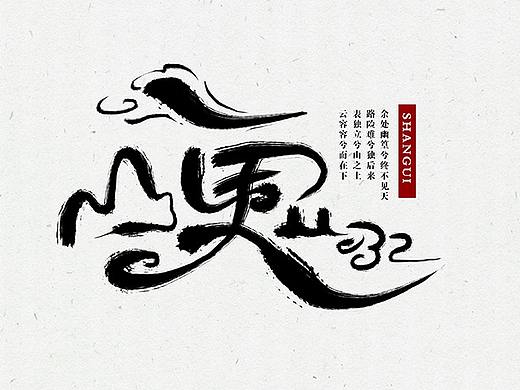 山鬼
SHANGUI
余处幽篁兮终不见天
路险难兮独后来
表独立兮山之上
云容容兮而在下